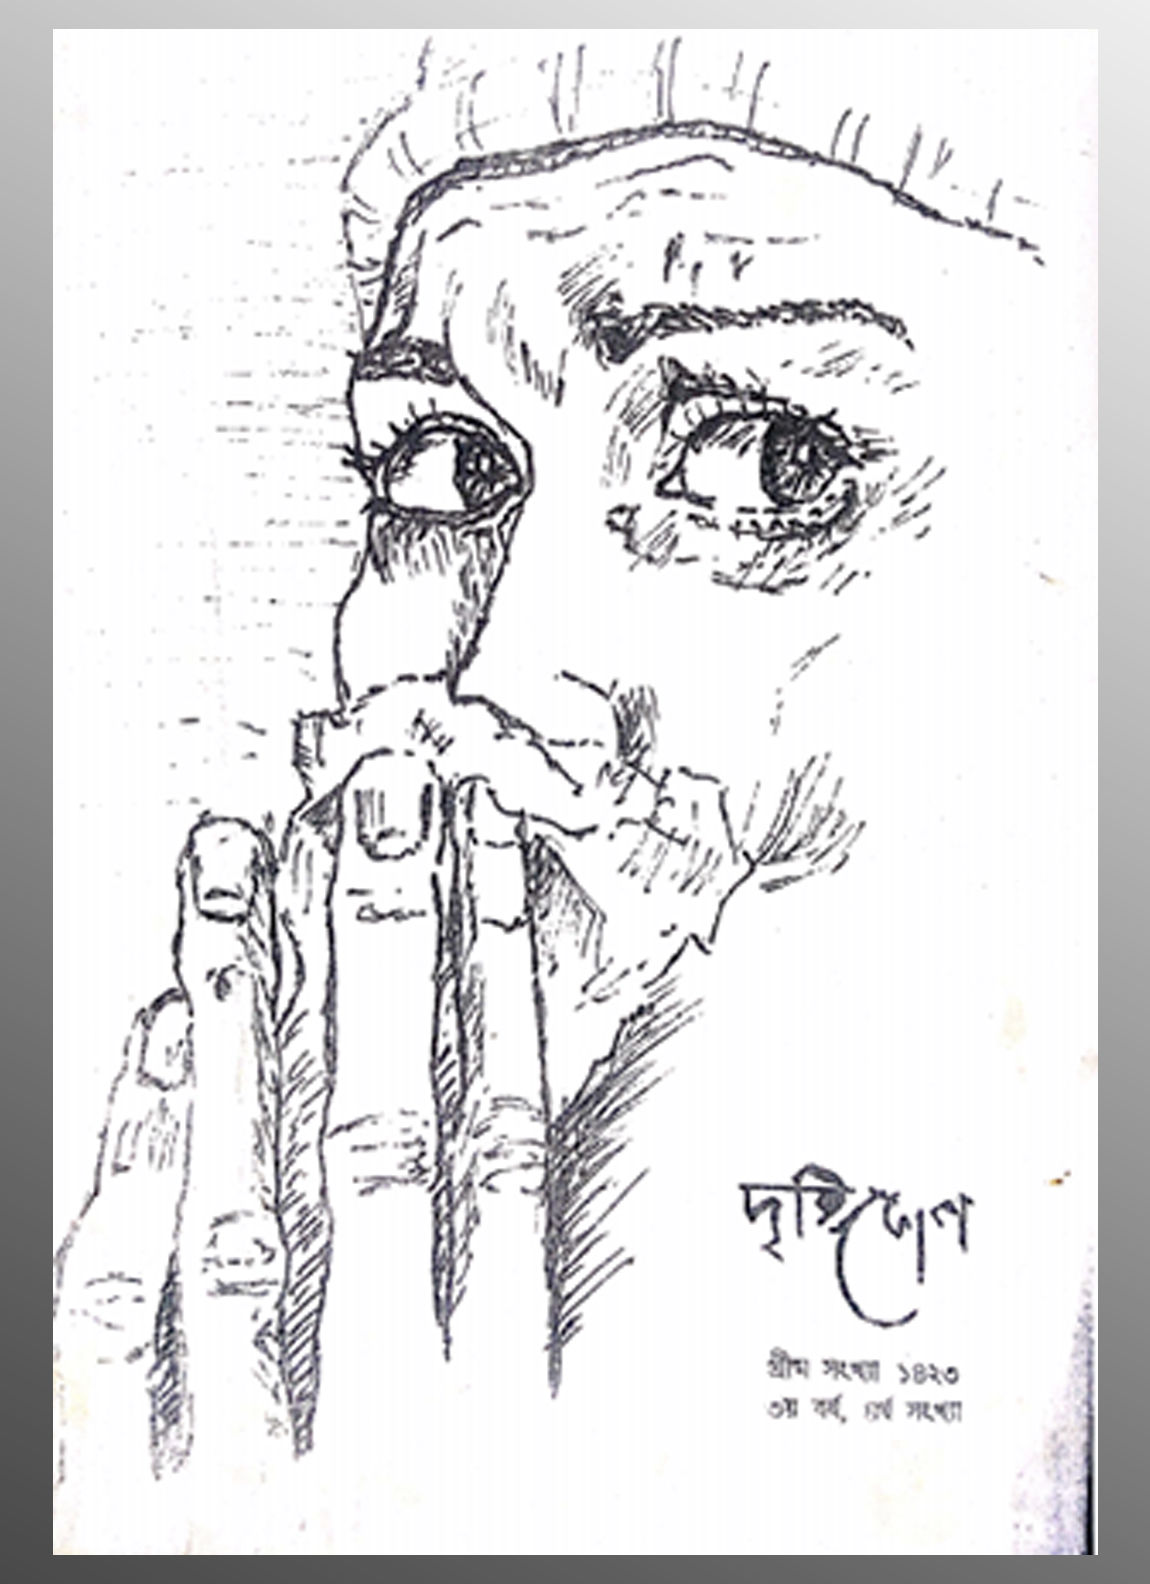 দৃষ্টিকোণ
গ্রীষ্ম সংখ্যা ১৪২৩
৩য় বর্ষ, সংখ্যা